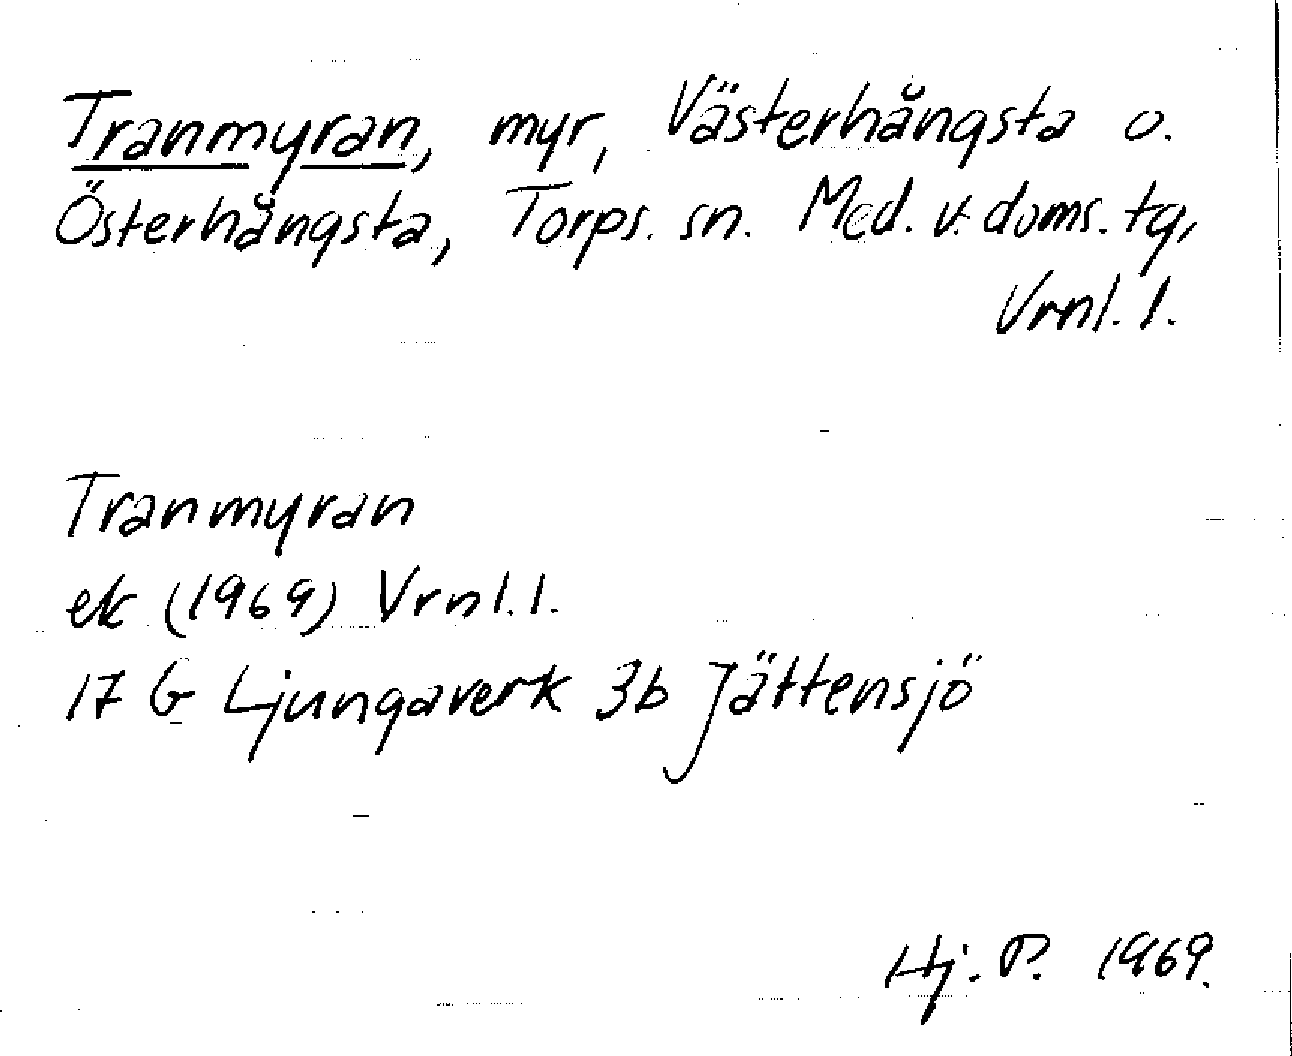 Tranmyran, myr, Västerhångsta o.
Österhångsta, Torps. sn. Med. v. doms. tg,
Vrnl. l.
Tranmyran
ek (1969) Vrnl. l.
17 G Ljungaverk 3b Jättensjö
Hj. P. 1969.